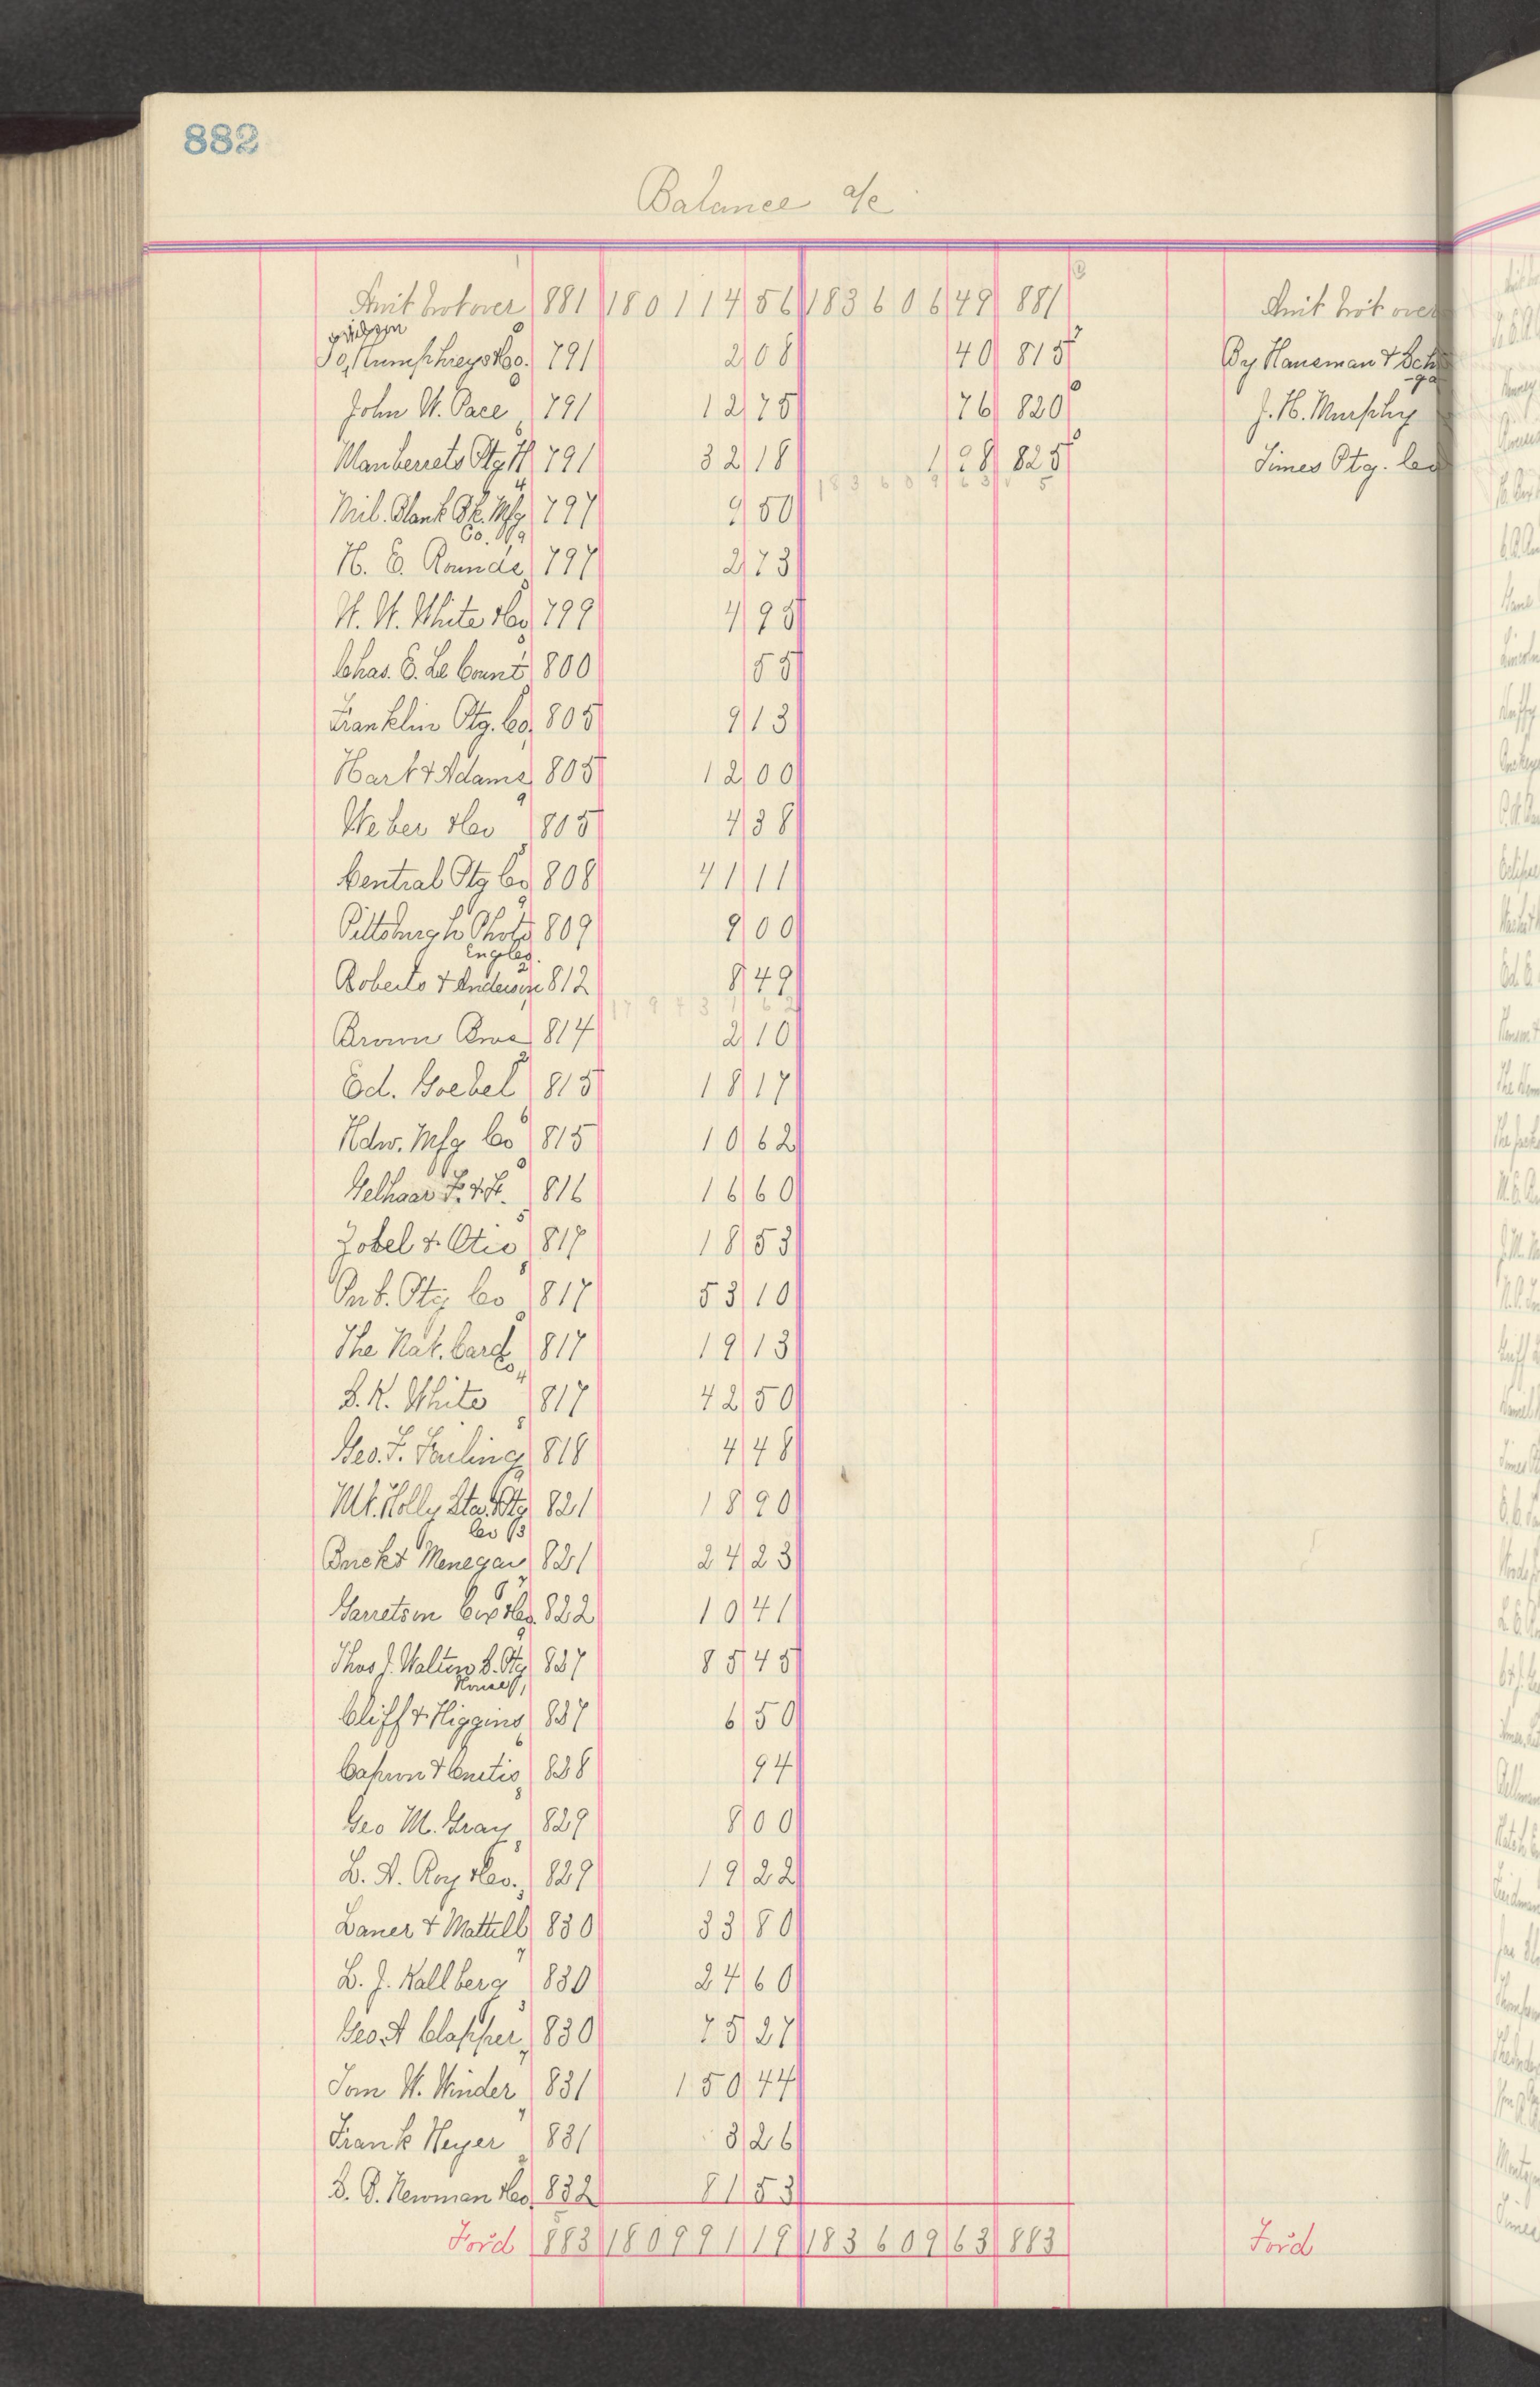 882
Balance a/c
Amt brot over 881 180114 56 183606 49 881 Amt brot over
To, Humphreys & Co. 791 2 08 40 815 By Hausman &
John W. Pace 791 12 75 76 820 J. H. Murphy
Ptg H 791 32 18 1 98 825 Times Ptg. Co
183609 63
Mil. Blank Bk. Mfg 797 9 50
Co.
H. E. Rounds 797 2 73
W. W. White & Co 799 4 95
Chas. E. Le Count 800 55
Franklin Ptg. Co. 805 9 13
Hart & Adams 805 12 00
Weber & Co 805 4 38
Central Ptg Co 808 41 11
Pittsburgh Photo 809 9 00
Eng Co.
Roberts & Anderson 812 8 49
Brown Bros 814 2 10
Ed. Goebel 815 18 17
Hdw. Mfg Co 815 10 62
Gelhaar F. & F. 816 16 60
Zobel & Otis 817 18 53
Pub. Ptg Co 817 53 10
The Nat. Card 817 19 13
Co
S. K. White 817 42 50
Geo. F. 818 4 48
Mt. Holly Sta. & Ptg 821 18 90
Co
Buck & Menegay 821 24 23
Garretson Cox & Co. 822 10 41
Thos J. Walters S. Ptg 827 85 45
House
Cliff & Higgins 827 6 50
Capron & Curtis 828 94
Geo M. Gray 829 8 00
L. A. Roy & Co. 829 19 22
Laner & Mattill 830 33 80
L. J. Kallberg 830 24 60
Geo. A Clapper 830 75 27
Tom W. Winder 831 150 44
Frank Heyer 831 3 26
S. G. Newman & Co 832 81 53
For'd 883 180991 19 183609 63 883 For'd